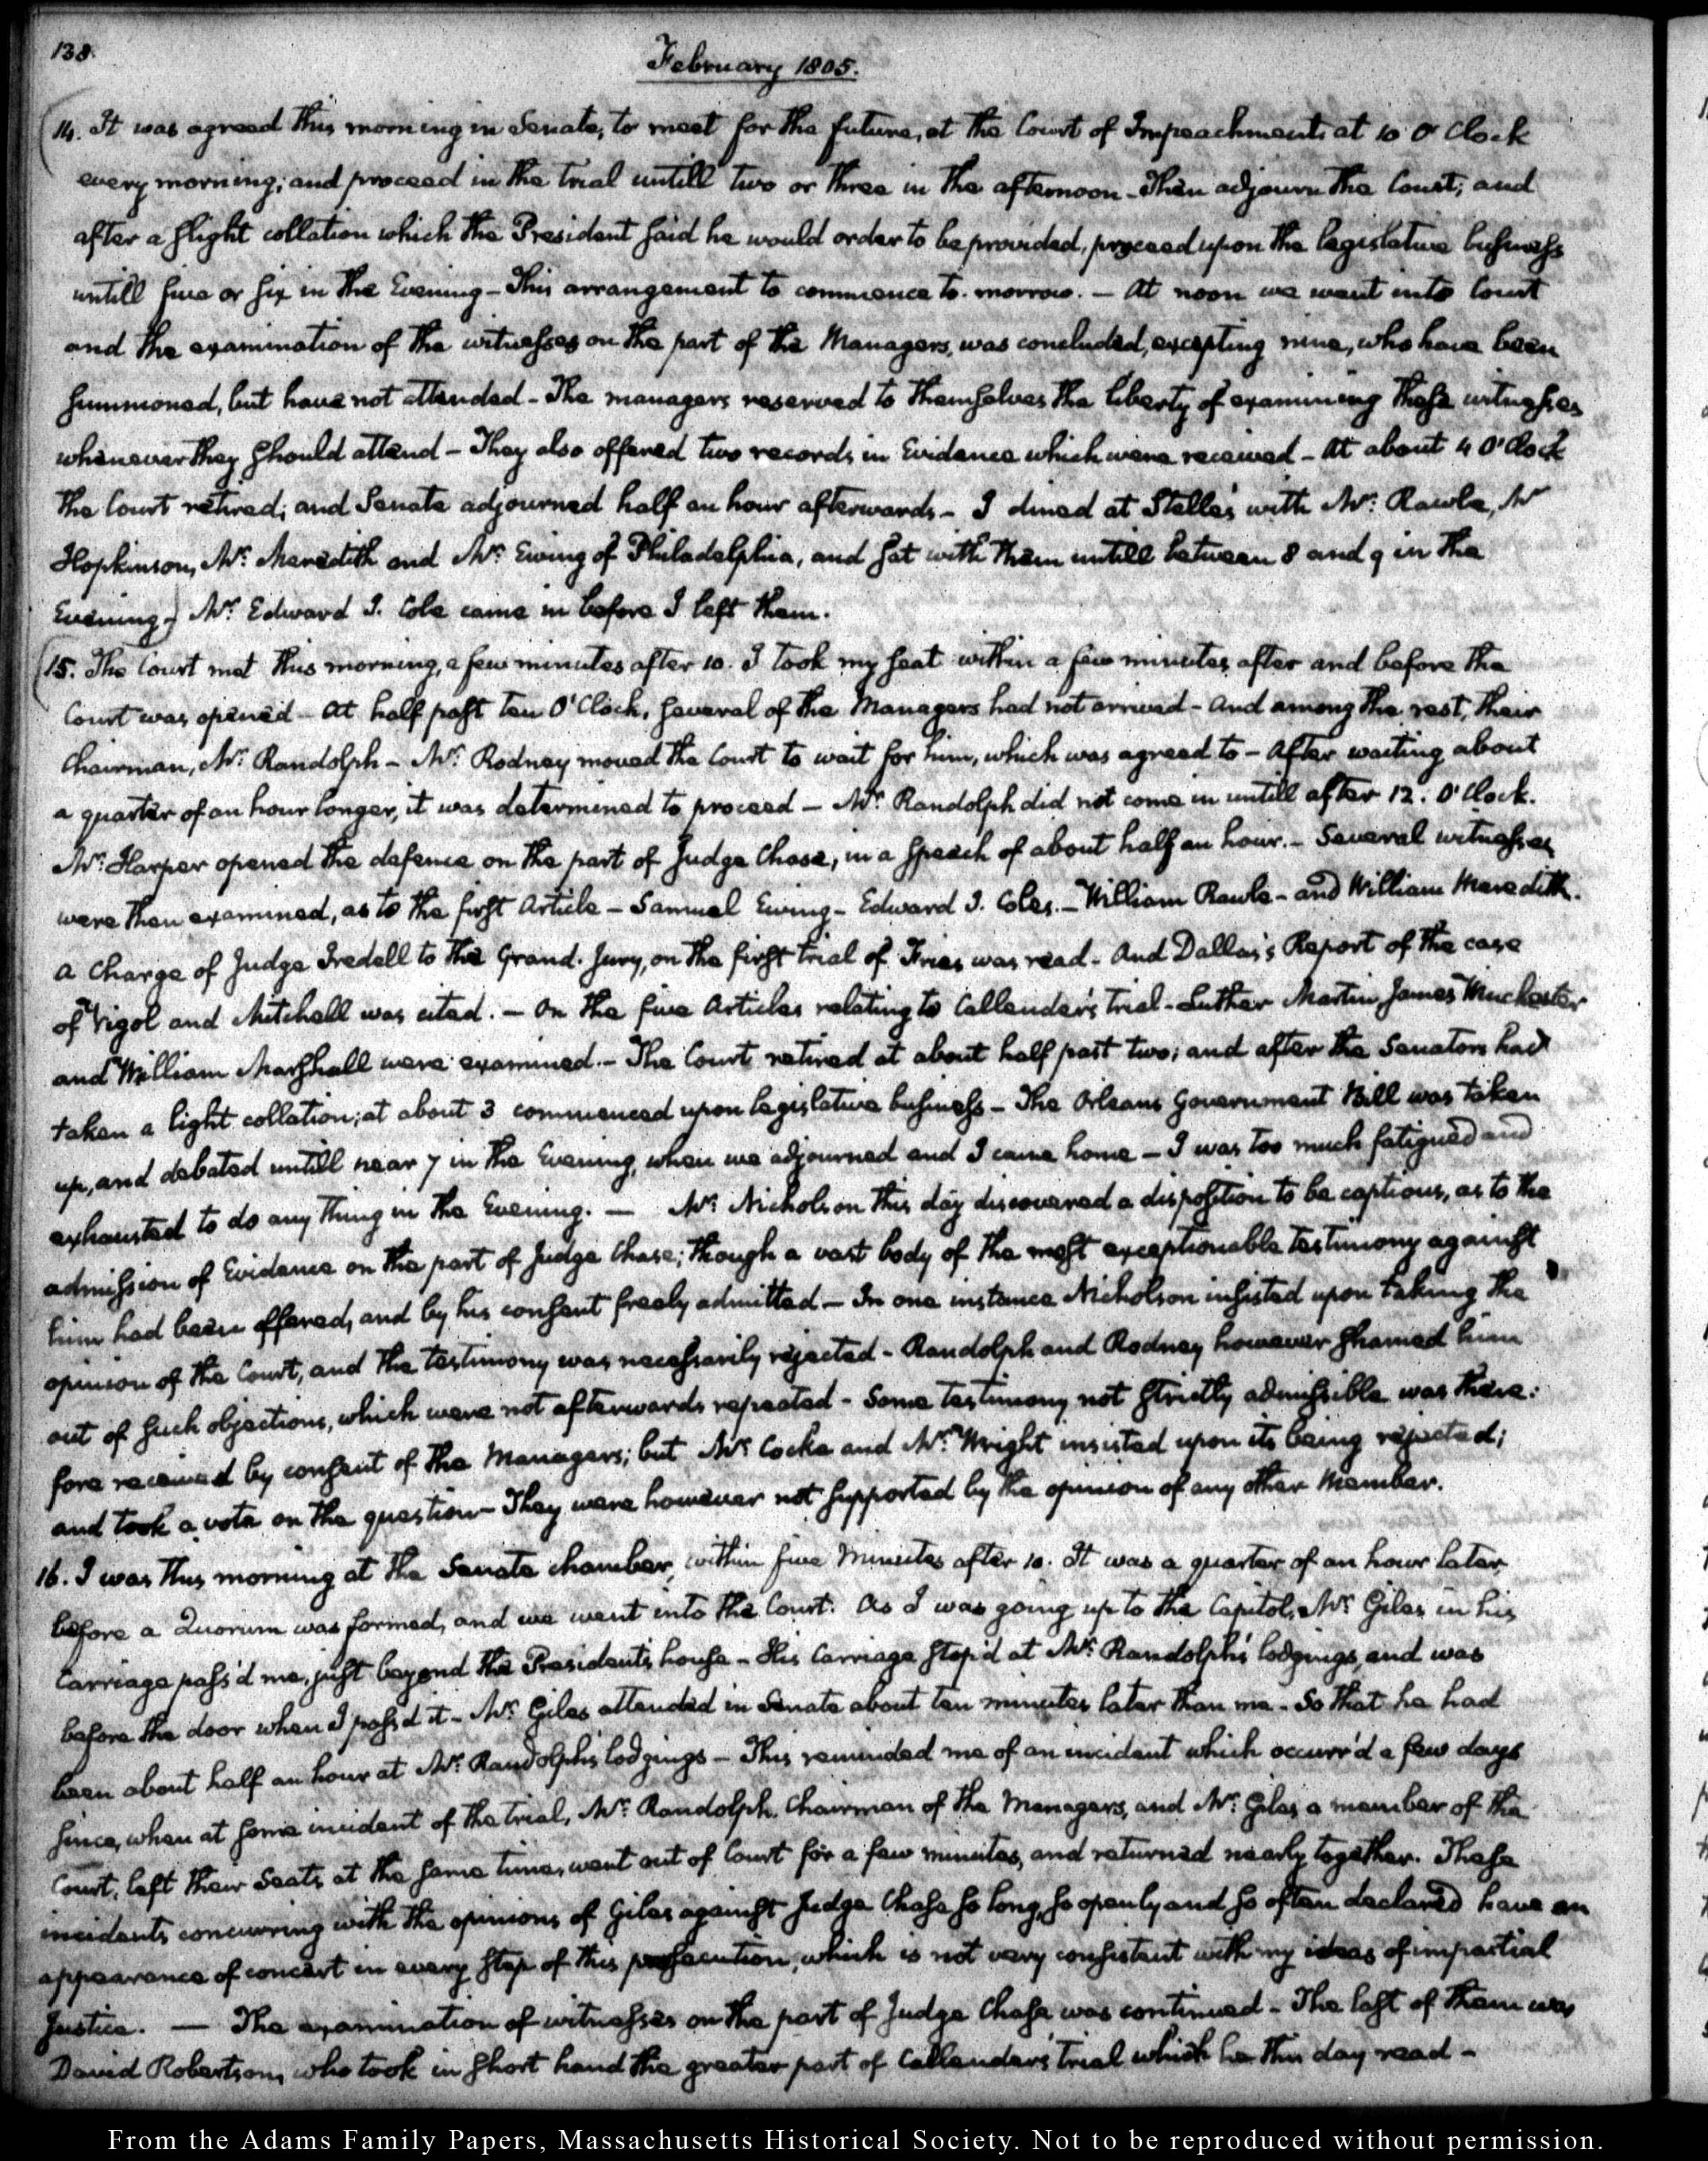 138.
February 1805.
14. It was agreed this morning in Senate, to meet for the future, at the Court of Impeachments at 10 O'Clock
every morning; and proceed in the trial untill two or three in the afternoon - Then adjourn the Court; and
after a slight collation which the President said he would order to be provided, proceed upon the legislative business
untill five or six in the Evening - This arrangement to commence to-morrow. - At noon we went into Court
and the examination of the witnesses on the part of the Managers, was concluded, excepting nine, who have been
summoned, but have not attended - The managers reserved to themselves the liberty of examining these witnesses
whenever they should attend - They also offered two records in Evidence which were received - At about 4 O'Clock
the Court retired; and Senate adjourned half an hour afterwards - I dined at Stelle's with Mr: Rawle, Mr
Hopkinson, Mr: Meredith and Mr: Ewing of Philadelphia, and sat with them untill between 8 and 9 in the
Evening - Mr: Edward J. Cole came in before I left them.
15. The Court met this morning, a few minutes after 10. I took my seat within a few minutes after and before the
Court was opened - At half past ten O'Clock, several of the Managers had not arrived - And among the rest, their
Chairman, Mr: Randolph - Mr: Rodney moved the Court to wait for him, which was agreed to - After waiting about
a quarter of an hour longer, it was determined to proceed - Mr: Randolph did not come in untill after 12. O'Clock.
Mr: Harper opened the defence on the part of Judge Chase, in a speech of about half an hour. - Several witnesses
were then examined, as to the first Article - Samuel Ewing - Edward J. Coles. - William Rawle - and William Meredith.
A Charge of Judge Iredell to the Grand-Jury, on the first trial of Fries was read - And Dallas's Report of the case
of Vigol and Mitchell was cited. - On the five Articles relating to Callender's trial - Luther Martin James Winchester
and William Marshall were examined. - The Court retired at about half past two; and after the Senators had
taken a light collation; at about 3 commenced upon legislative business - The Orleans Government Bill was taken
up, and debated untill near 7 in the Evening, when we adjourned and I came home - I was too much fatigued and
exhausted to do any thing in the Evening. - Mr: Nicholson this day discovered a disposition to be captious, as to the
admission of Evidence on the part of Judge Chase; though a vast body of the most exceptionable testimony against
him had been offered, and by his consent freely admitted - In one instance Nicholson insisted upon taking the
opinion of the Court, and the testimony was necessarily rejected - Randolph and Rodney however shamed him
out of such objections, which were not afterwards repeated - Some testimony not strictly admissible was there:
fore received by consent of the Managers; but Mr: Cocke and Mr: Wright insisted upon its being rejected;
and took a vote on the question - They were however not supported by the opinion of any other Member.
16. I was this morning at the Senate chamber, within five minutes after 10. It was a quarter of an hour later,
before a Quorum was formed, and we went into the Court. As I was going up to the Capitol, Mr: Giles in his
Carriage pass'd me, just beyond the President's house - His Carriage stop'd at Mr: Randolph's lodgings, and was
before the door when I pass'd it - Mr: Giles attended in Senate about ten minutes later than me - So that he had
been about half an hour at Mr: Randolph's lodgings - This reminded me of an incident which occurr'd a few days
since, when at some incident of the trial, Mr: Randolph, Chairman of the Managers, and Mr: Giles, a member of the
Court, left their Seats at the same time, went out of Court for a few minutes, and returned nearly together. These
incidents concurring with the opinions of Giles against Judge Chase so long, so openly and so often declared have an
appearance of concert in every step of this prosecution, which is not very consistent with my ideas of impartial
Justice. - The examination of witnesses on the part of Judge Chase was continued - The last of them was
David Robertson, who took in short hand the greater part of Callender's trial which he this day read -
From the Adams Family Papers, Massachusetts Historical Society. Not to be reproduced without permission.